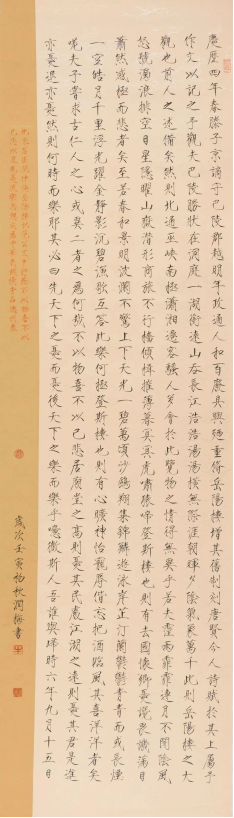 慶曆四年春滕子京謫守巴陵郡越明年政通人和百廢具興乃重脩岳陽樓增其舊制刻唐賢今人詩賦於其上屬予
作文以記之予觀夫巴陵勝狀在洞庭一湖銜遠山吞長江浩浩湯湯橫無際涯朝暉夕陰氣象萬千此則岳陽樓之大
觀也前人之述備矣然則北通巫峽南極瀟湘遷客騷人多會於此覽物之情得無異乎若夫霪雨霏霏連月不開陰風
怒號濁浪排空日星隱曜山嶽潛形商旅不行檣傾楫摧薄暮冥冥虎嘯猿啼登斯樓也則有去國懷鄉憂讒畏譏滿目
蕭然感極而悲者矣至若春和景明波瀾不驚上下天光一碧萬頃沙鷗翔集錦鱗游泳岸芷汀蘭鬱鬱青青而或長煙
一空皓月千里浮光躍金靜影沉璧漁歌互答此樂何極登斯樓也則有心曠神怡寵辱偕忘把酒臨風其喜洋洋者矣
嗟夫予嘗求古仁人之心或異二者之為何哉不以物喜不以己悲居廟堂之高則憂其民處江湖之遠則憂其君是進
亦憂退亦憂然則何時而樂耶其必曰先天下之憂而憂後天下之樂而樂乎噫微斯人吾誰與歸時六年九月十五日
歲次壬寅初秋潤梅書